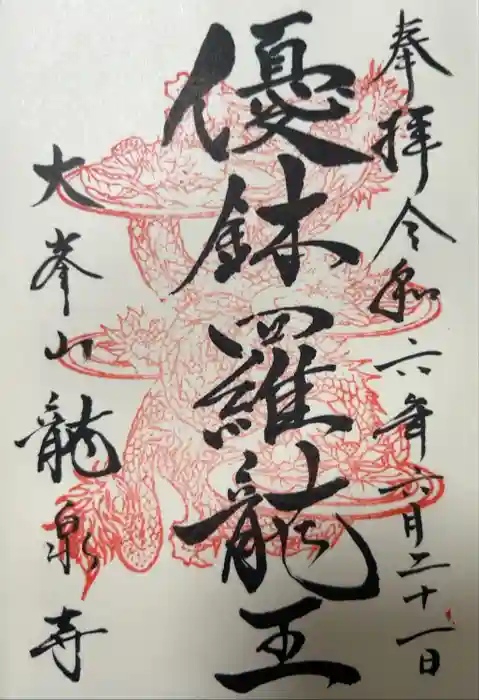 奉拝 令和六年六月二十一日
優鉢羅龍王
大峯山龍泉寺